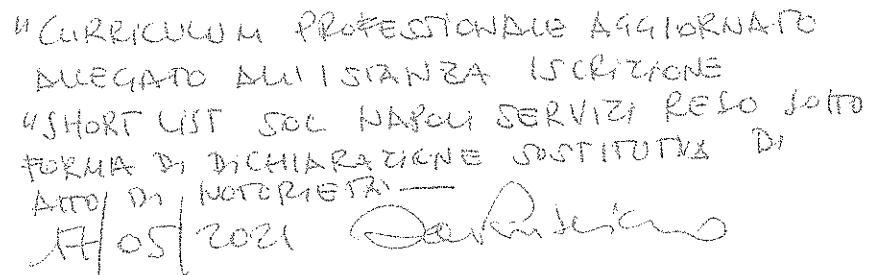 "CURRICULUM PROFESSIONALE AGGIORNATO
ALLEGATO ALL'ISTANZA ISCRIZIONE
"SHORT LIST SOC NAPOLI SERVIZI RESO SOTTO
FORMA DI DICHIARAZIONE SOSTITUTIVA DI
ATTO DI NOTORIETÀ —
17/05/2021